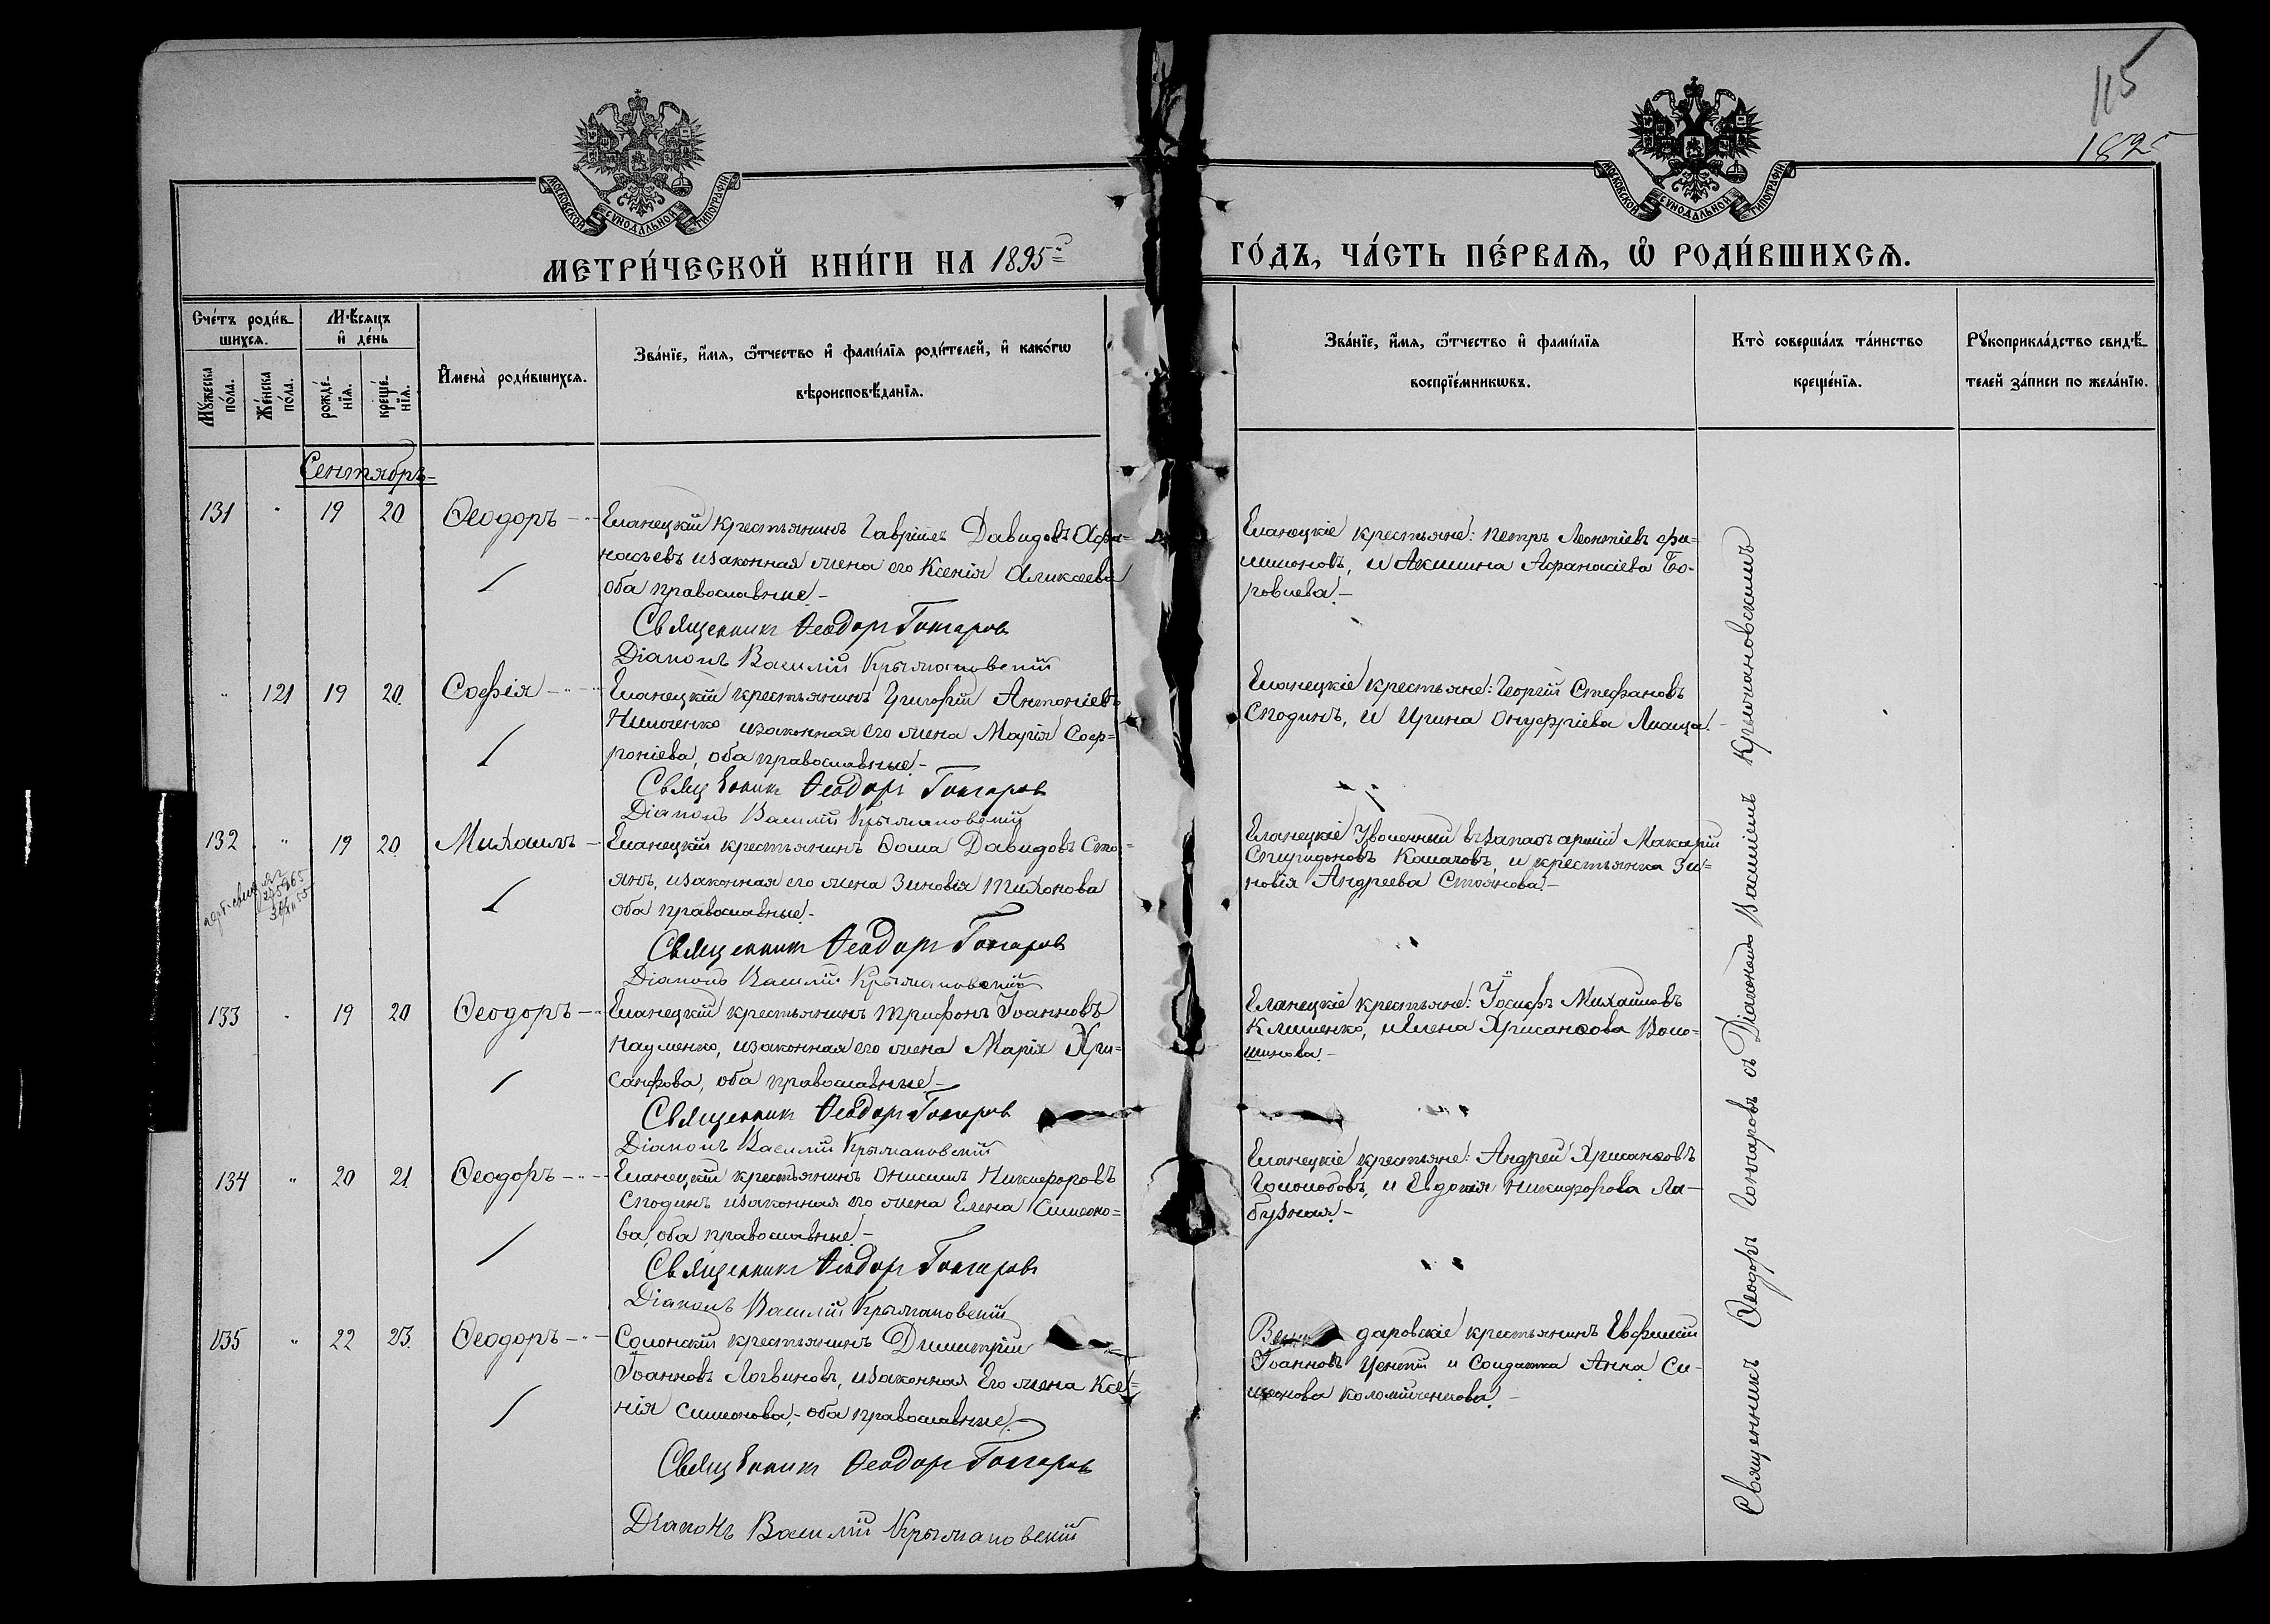 115
182
МОСКОВСКОЙ СѴНОДАЛЬНОЙ ТИПОГРАФІИ
МОСКОВСКОЙ СѴНОДАЛЬНОЙ ТИПОГРАФІИ
МЕТРИ́ЧЕСКОЙ КНИ́ГИ НА 1895й
ГО́ДЪ, ЧА́СТЬ ПЕ́РВАѦ, Ѡ҆ РОДИ́ВШИХСѦ.
Сче́тъ роди́в-
шихсѧ.
Мꙋ́жеска по́ла.
Же́нска по́ла.
Мѣ́сѧцъ
и҆ де́нь
рожде́-нїѧ.
креще́-нїѧ.
И҆мена̀ роди́вшихсѧ.
Зва́нїе, и҆́мѧ, ѻ҆́тчество и҆ фами́лїѧ роди́телей, и҆ како́гѡ
вѣроисповѣ́данїѧ.
Зва́нїе, и҆́мѧ, ѻ҆́тчество и҆ фами́лїѧ
воспрїе́мникѡвъ.
Кто̀ соверша́лъ та́инство
креще́нїѧ.
Рꙋкоприкла́дство свидѣ́-
телей за́писи по жела́нїю.
Сентябрь
131 " 19 20 Ѳеодоръ
Еланецкій крестьянинъ Гавріилъ Давидовъ Афа-
насьевъ изаконная жена его Ксенія Аликсеева
оба православные.
Священникъ Ѳеодоръ Гончаровъ
Діаконъ Василій Крыжановскій
Еланецкіе крестьяне: Петръ Леонтіевъ Фи-
лимоновъ, и Акилина Афанасіева Бо-
ровлева.
" 121 19 20. Софія
Еланецкій крестьянинъ Григорій Антоніевъ
изаконная его жена Марія Соф-
роніева, оба православные.
Священникъ Ѳеодоръ Гончаровъ
Діаконъ Василій Крыжановскій
Еланецкіе крестьяне: Георгій Стефановъ
Сподинъ, и Ирина Онуфріева
132 " 19 20. Михаилъ
Еланецкій крестьянинъ Ѳома Давидовъ Сто-
янъ, изаконная его жена Зиновія Тихонова
оба православные.
Священникъ Ѳеодоръ Гончаровъ
Діаконъ Василій Крыжановскій
Еланецкіе Уволенный въ запасъ арміи Макарій
Спиридоновъ Казачовъ и крестьянка Зи-
новія Андреева Стоянова.
133 " 19 20 Ѳеодоръ
Еланецкій крестьянинъ Трифонъ Іоанновъ
Науменко, изаконная его жена Марія Хри-
санфова, оба православные
Священникъ Ѳеодоръ Гончаровъ
Діаконъ Василій Крыжановскій
Еланецкіе крестьяне: Іосифъ Михаиловъ
Клименко, и Елена Хрисанѳова Воло-
шинова.
134 " 20 21 Ѳеодоръ
Еланецкій крестьянинъ Онисимъ Никифоровъ
Сподинъ изаконная его жена Елена Симеоно-
ва, оба православные.
Священникъ Ѳеодоръ Гончаровъ
Діаконъ Василій Крыжановскій
Еланецкіе крестьяне: Андрей Хрисанѳовъ
Гололобовъ, и Евдокія Никифорова Ла-
бузная.
135 " 22 23. Ѳеодоръ
Солонскій крестьянинъ Димитрій
Іоанновъ Логвиновъ, изаконная Его жена Ксе-
нія Симеонова, оба православные.
Священникъ Ѳеодоръ Гончаровъ
Діаконъ Василій Крыжановскій
даровскіе крестьянинъ Евфимій
Іоанновъ и Солдатка Анна Си-
меонова Коломійченкова.
Священникъ Ѳеодоръ Гончаровъ съ Діакономъ Василіемъ Крыжановскимъ